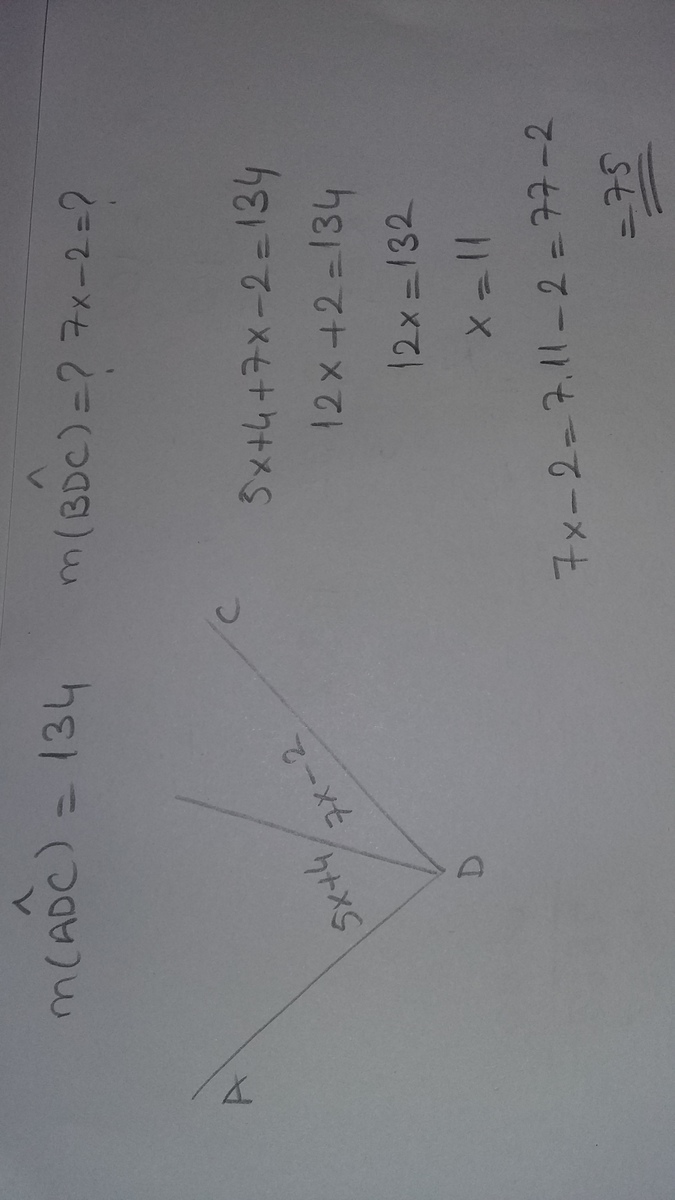 m(ADC) = 134 m(BDC)=? 7x-2=?
A
5x+4
7x-2
C
D
5x+4+7x-2=134
12x+2=134
12x=132
x=11
7x-2=7.11-2=77-2
=75